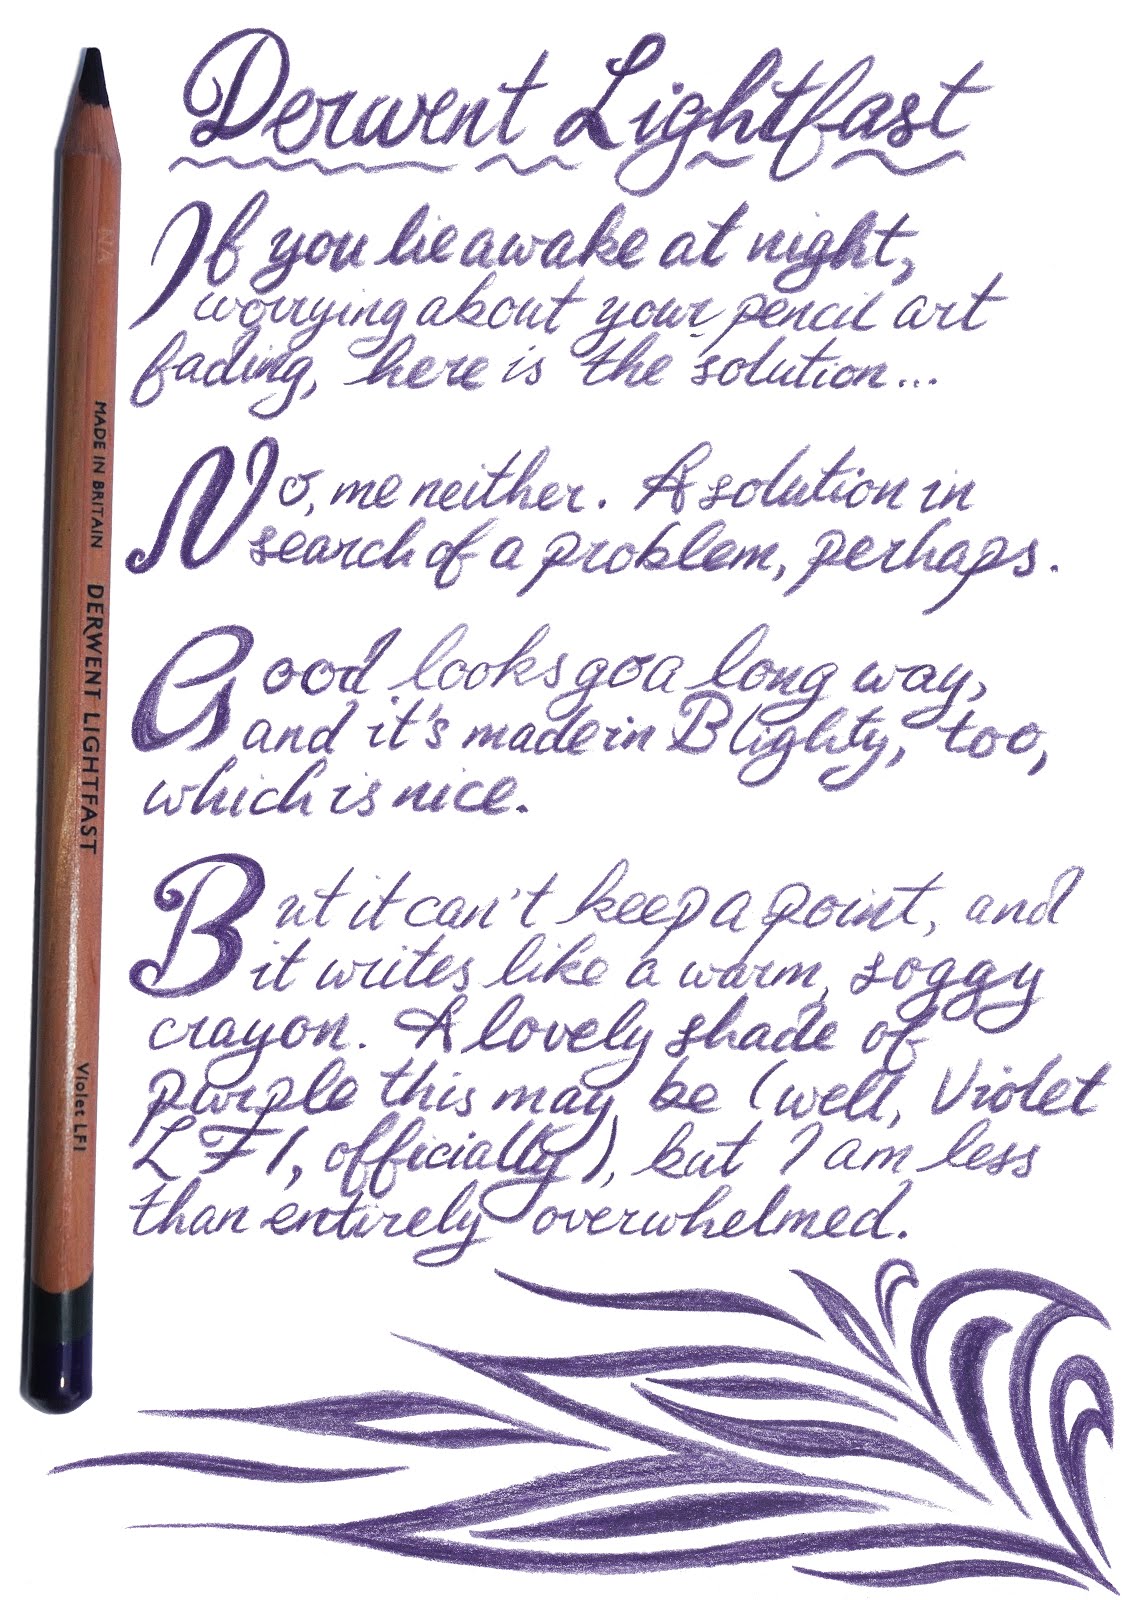 Derwent Lightfast
If you lie awake at night,
worrying about your pencil art
fading, here is the solution...
No, me neither. A solution in
search of a problem, perhaps.
Good looks go a long way,
and it's made in Blighty, too,
which is nice.
But it can't keep a point, and
it writes like a warm, soggy
crayon. A lovely shade of
purple this may be (well, Violet
LF1, officially), but I am less
than entirely overwhelmed.
NA
MADE IN BRITAIN DERWENT LIGHTFAST Violet LF1